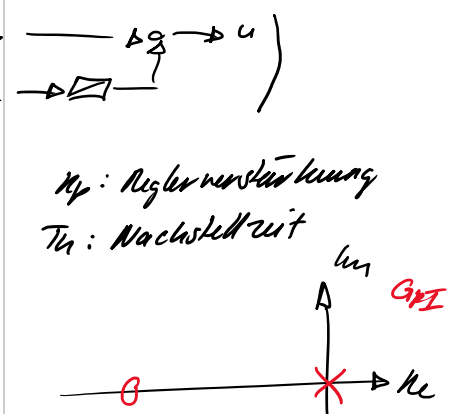 u
Kp : Reglerverstärkung
Tn : Nachstellzeit
Im
GPI
Re